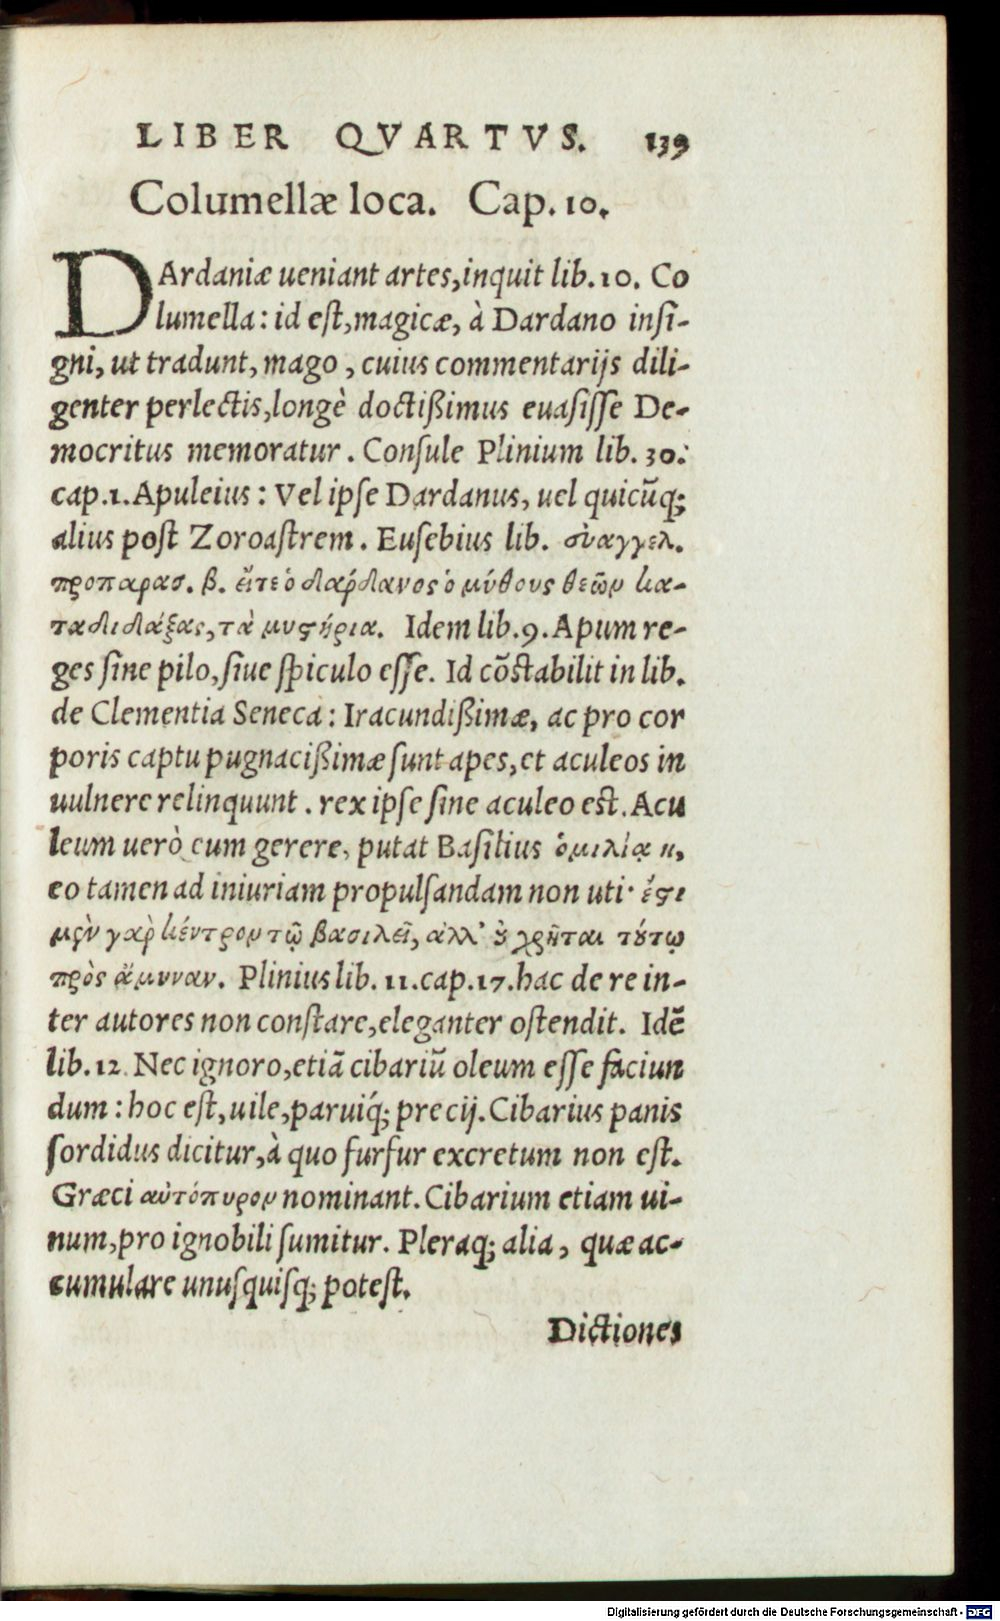 LIBER QVARTVS. 139
Columellæ loca. Cap. 10.
DArdaniæ ueniant artes, inquit lib. 10. Co
lumella: id est, magicæ, à Dardano insi-
gni, ut tradunt, mago, cuius commentarijs dili-
genter perlectis, longè doctißimus euasisse De-
mocritus memoratur. Consule Plinium lib. 30.
cap. 1. Apuleius: Vel ipse Dardanus, uel quicũq;
alius post Zoroastrem. Eusebius lib. σὐαγγελ.
προπαρασ. β. εἴτε ὁ δαρδανος ὁ μύθους θεῶν κα-
ταδιδάξας, τὰ μυϛήρια. Idem lib. 9. Apum re-
ges sine pilo, siue spiculo esse. Id cõstabilit in lib.
de Clementia Seneca: Iracundißimæ, ac pro cor
poris captu pugnacißimæ sunt apes, et aculeos in
uulnere relinquunt. rex ipse sine aculeo est. Acu
leum uerò eum gerere, putat Basilius ὁμιλίᾳ η,
eo tamen ad iniuriam propulsandam non uti· ἔϛι
μὲν γὰρ κέντρον τῷ βασιλεῖ, ἀλλ' ȣ̓ χρῆται τȣ́τῳ
πρὸς ἄμυναν. Plinius lib. 11. cap. 17. hac de re in-
ter autores non constare, eleganter ostendit. Idẽ
lib. 12. Nec ignoro, etiã cibariũ oleum esse faciun
dum: hoc est, uile, paruiq́; precij. Cibarius panis
sordidus dicitur, à quo furfur excretum non est.
Græci αὐτόπυρον nominant. Cibarium etiam ui-
num, pro ignobili sumitur. Pleraq; alia, quæ ac-
cumulare unusquisq; potest.
Dictiones
Digitalisierung gefördert durch die Deutsche Forschungsgemeinschaft - DFG